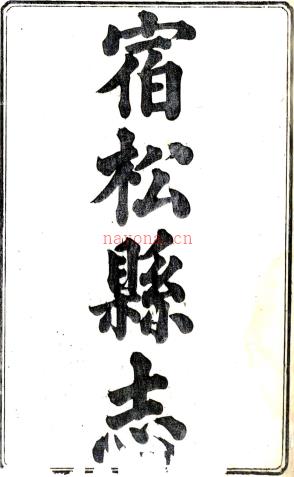 宿松縣志
nayona.cn